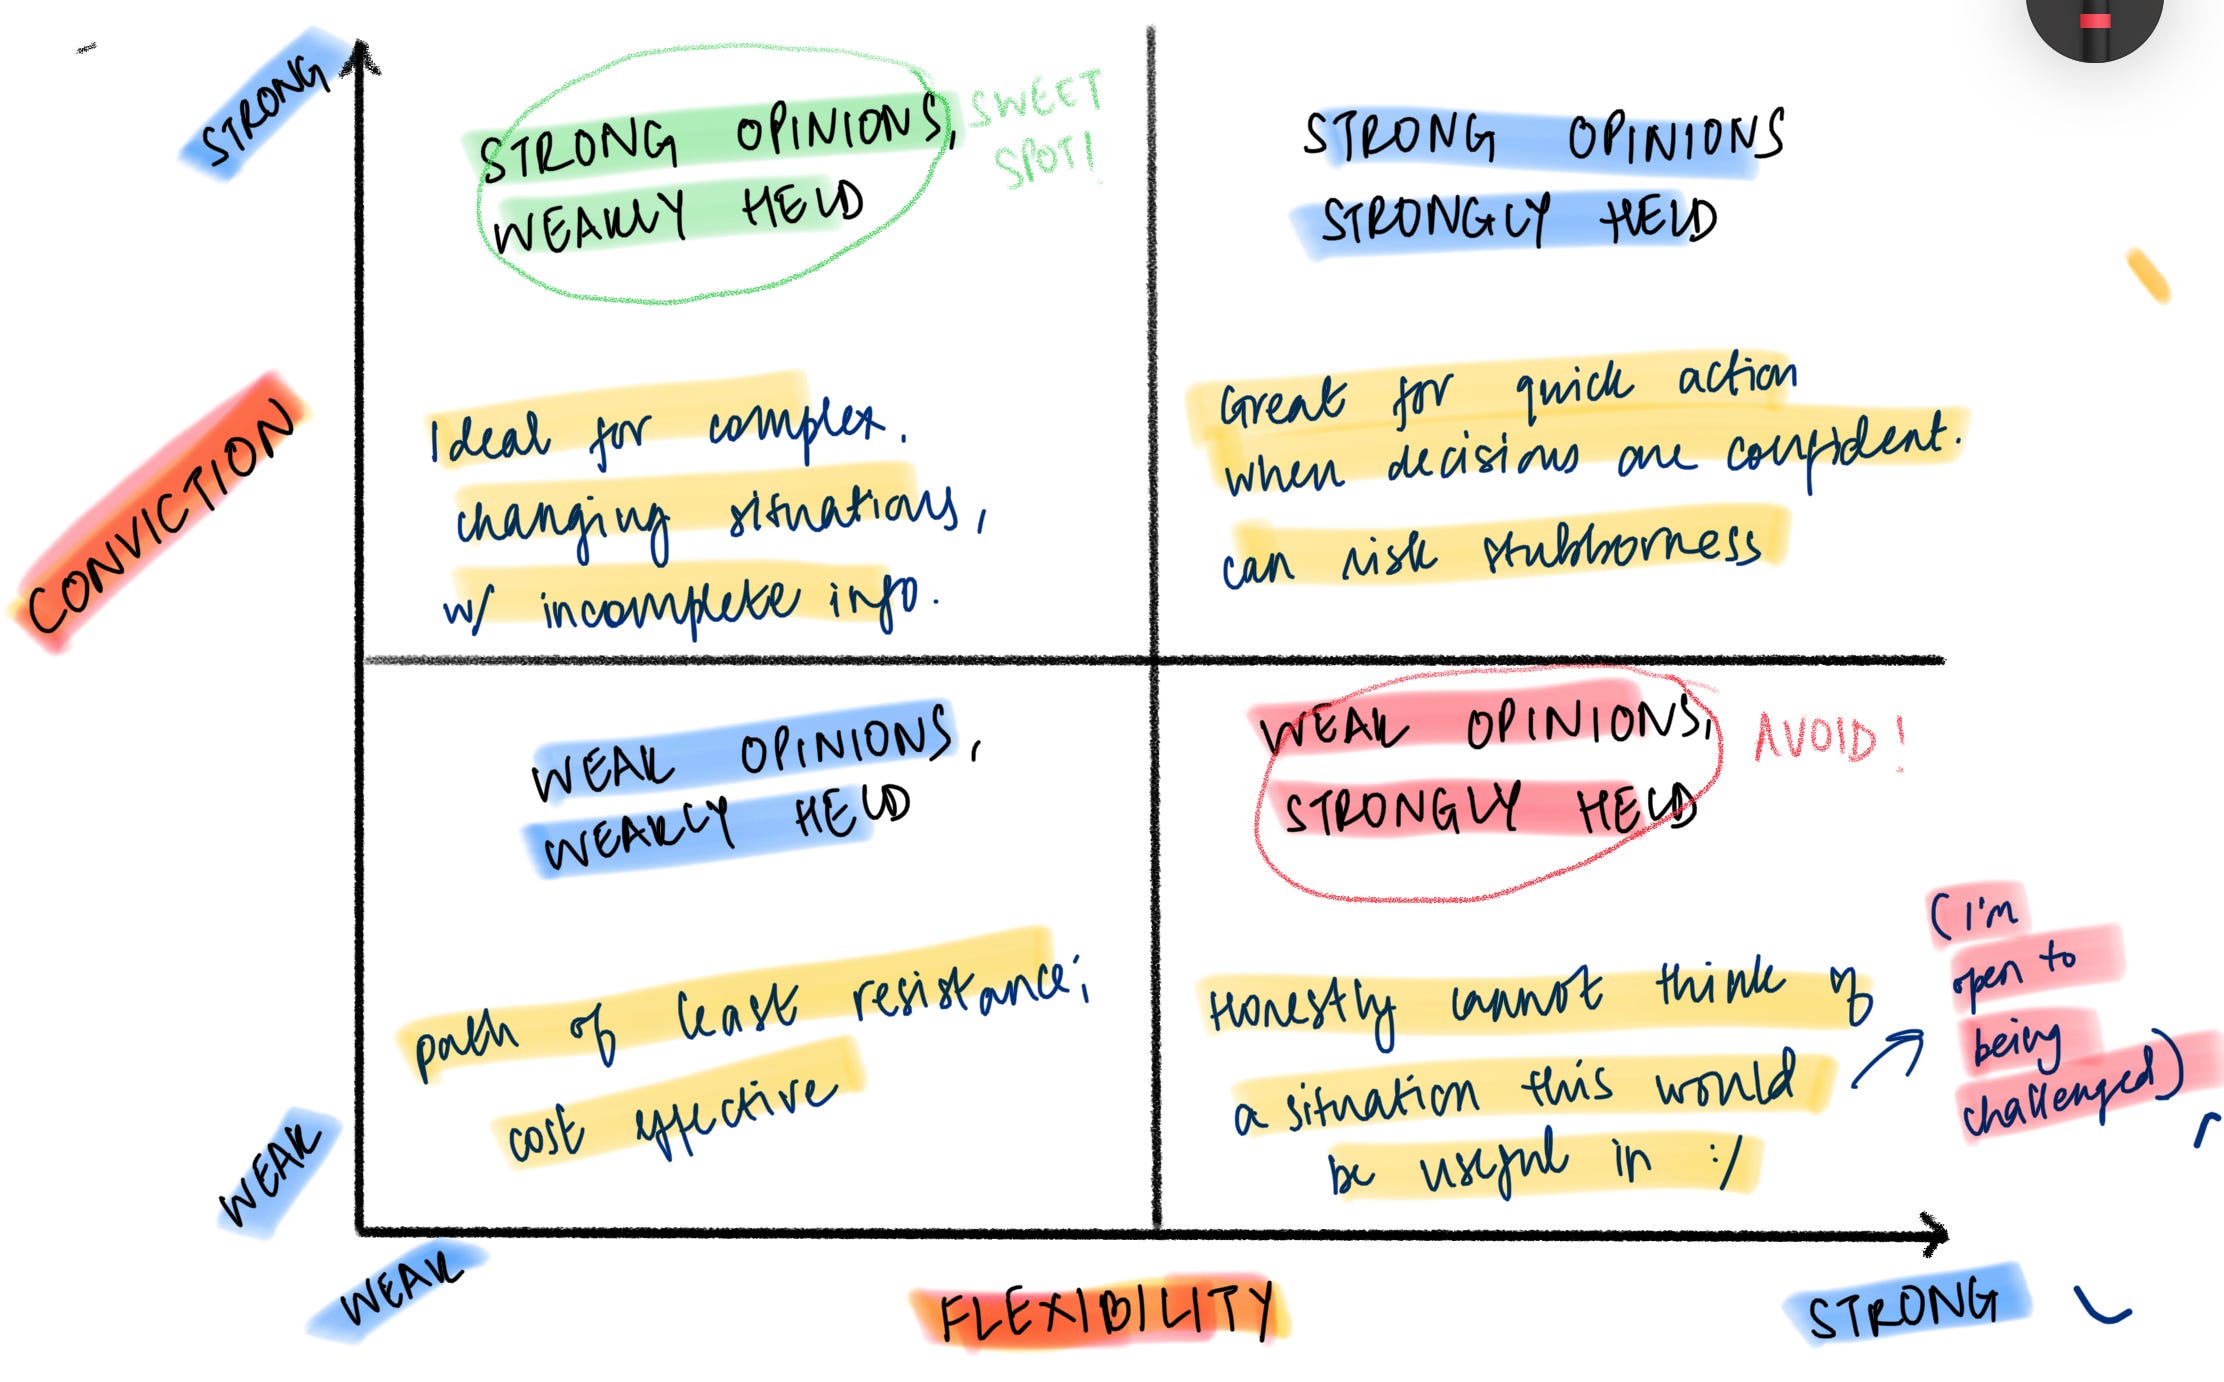 STRONG
STRONG OPINIONS,
WEAKLY HELD
SWEET
SPOT!
STRONG OPINIONS
STRONGLY HELD
CONVICTION
Ideal for complex.
changing situations,
w/ incomplete info.
Great for quick action
when decisions are confident.
can risk stubborness
WEAK OPINIONS,
WEAKLY HELD
WEAK OPINIONS,
STRONGLY HELD
AVOID!
path of least resistance;
cost effective
Honestly cannot think of
a situation this would
be useful in :/
(I'm
open to
being
challenged)
WEAK
WEAK
FLEXIBILITY
STRONG